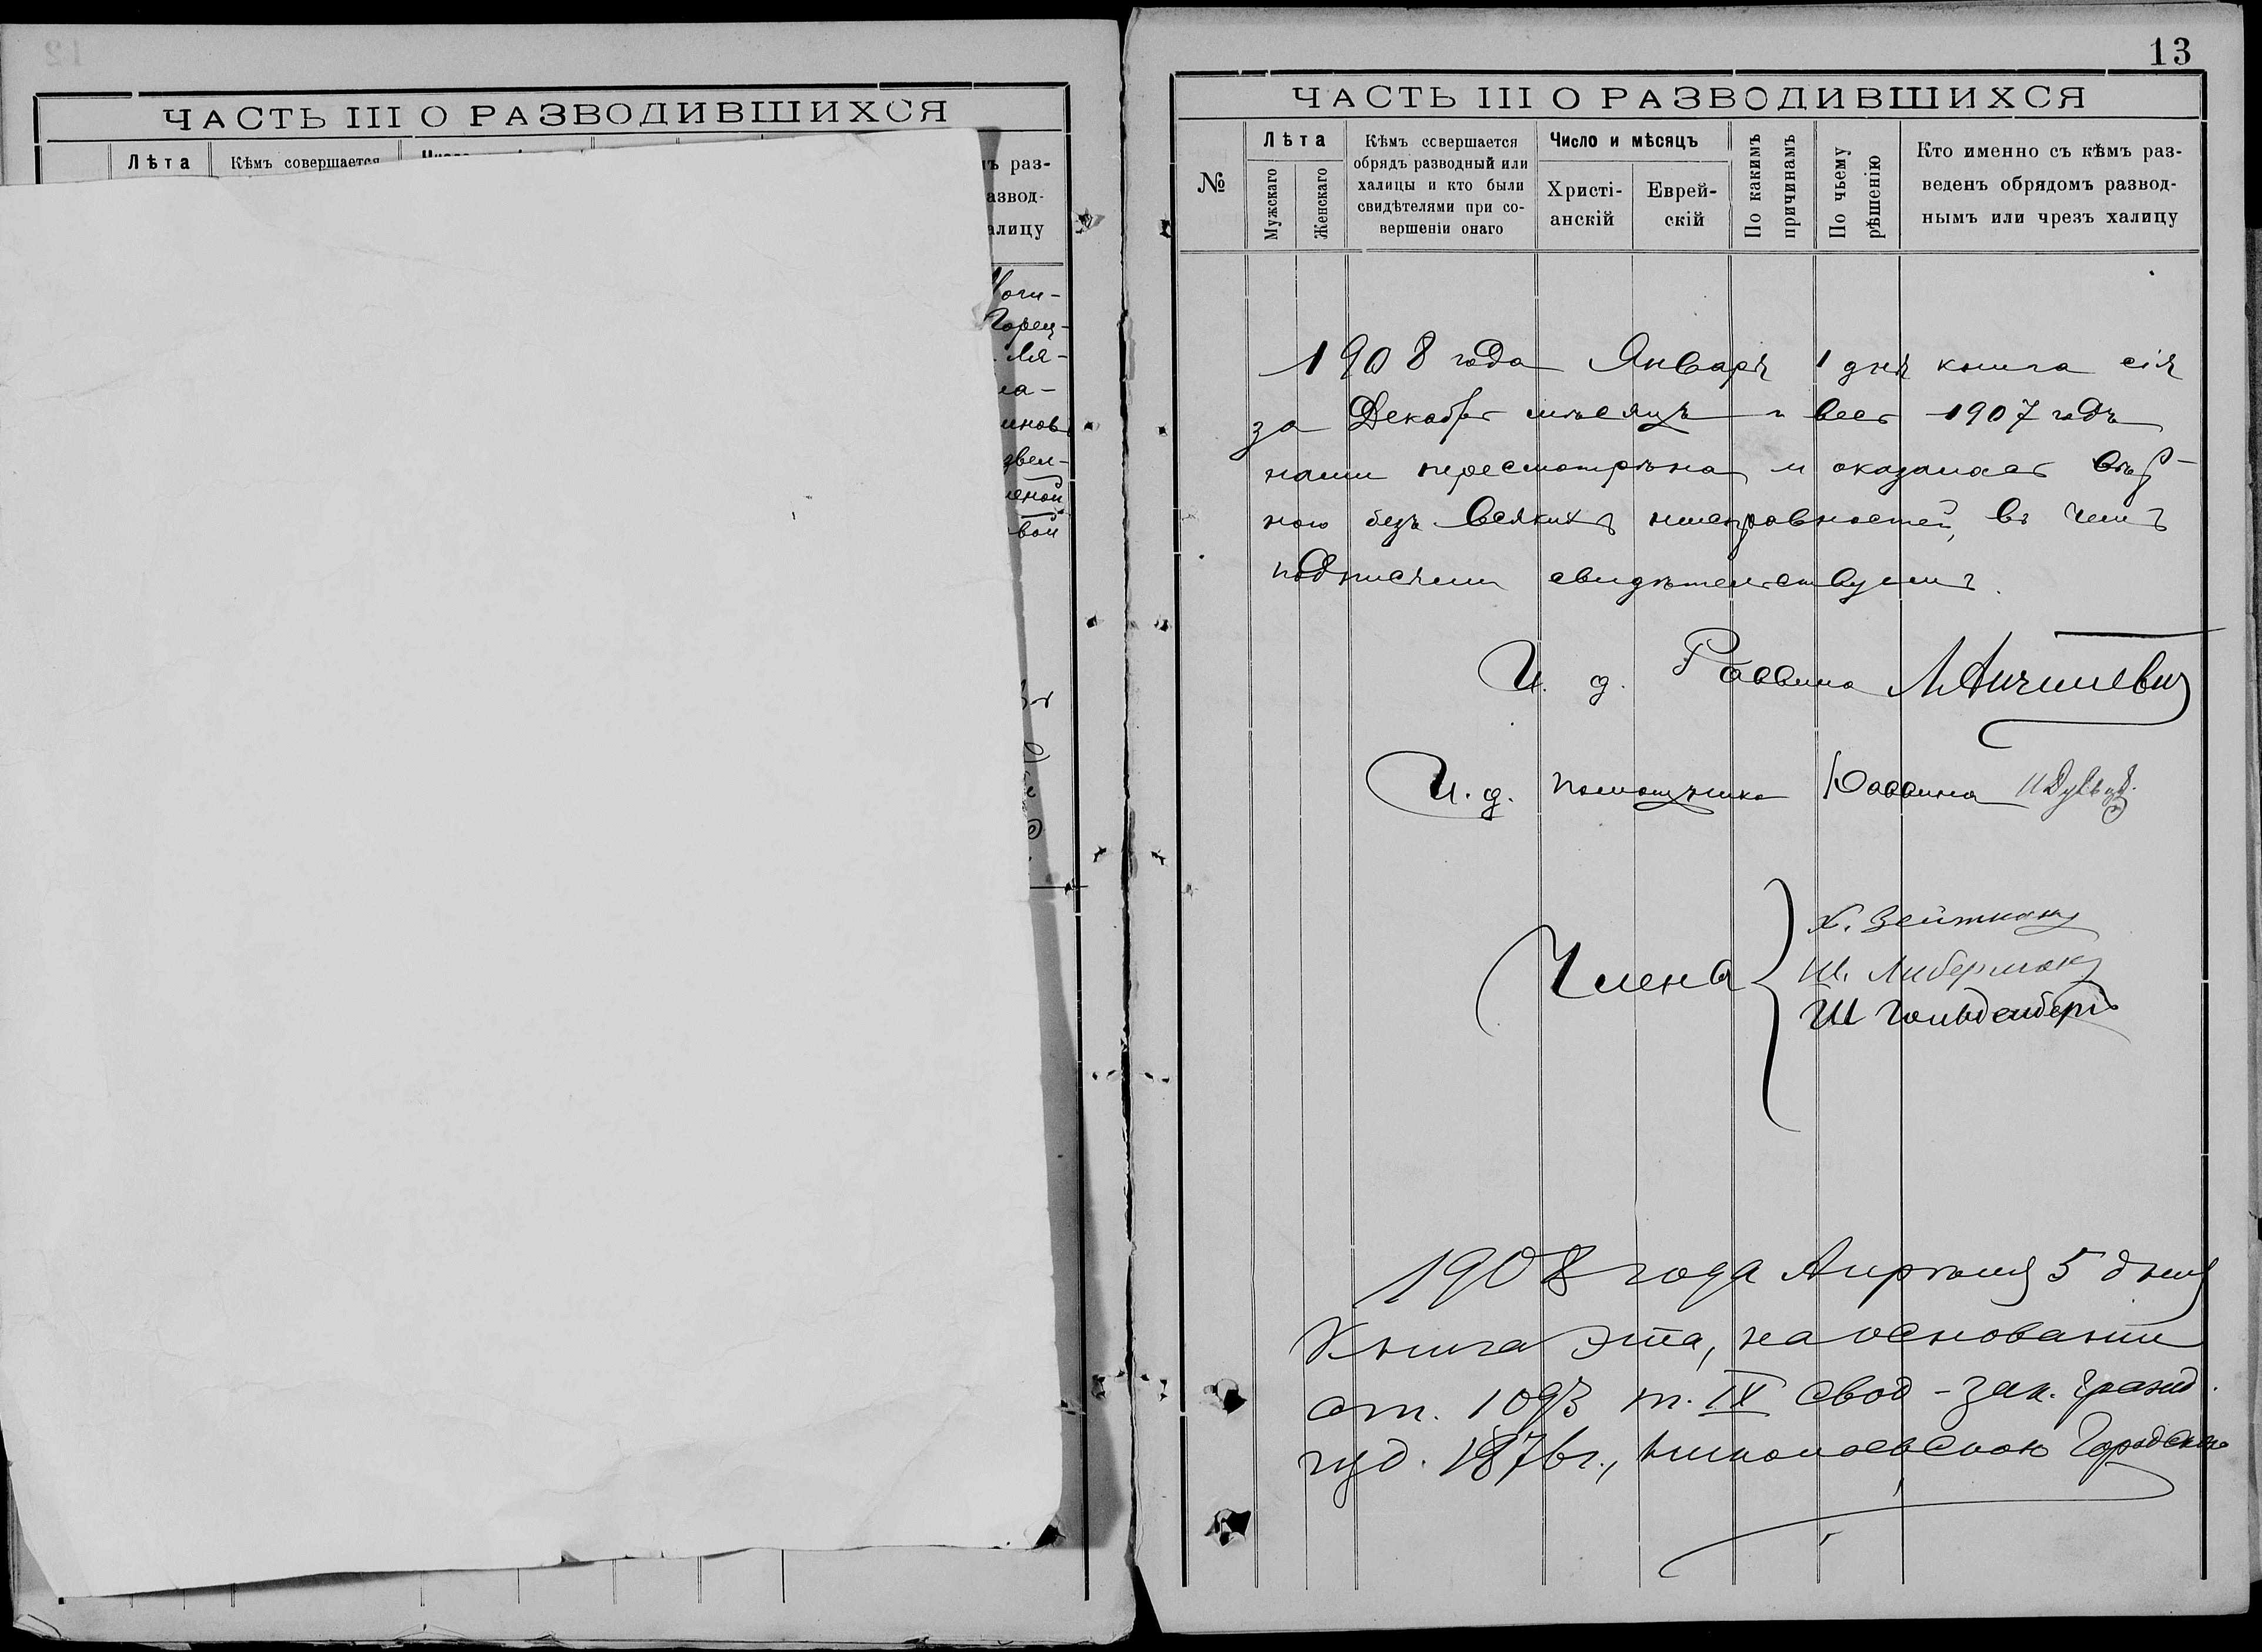 ЧАСТЬ III О РАЗВОДИВШИХСЯ
Лѣта
Кѣмъ совершается
ъ раз-
азвод-
алицу
Горец-
ла-
инов
звел-
леной
вой
13
ЧАСТЬ III О РАЗВОДИВШИХСЯ
№
Лѣта
Мужскаго
Женскаго
Кѣмъ совершается
обрядъ разводный или
халицы и кто были
свидѣтелями при со-
вершеніи онаго
Число и мѣсяцъ
Христі-
анскій
Еврей-
скій
По какимъ
причинамъ
По чьему
рѣшенію
Кто именно съ кѣмъ раз-
веденъ обрядомъ развод-
нымъ или чрезъ халицу
1908 года Января 1 дня книга сія
за Декабрь мѣсяцъ и весь 1907 годъ
нами пересмотрѣна и оказалась вѣр-
ною безъ всякихъ неисправностей, въ чемъ
подписями свидѣтельствуемъ.
И. д. Раввина
И. д. помощника Раввина
Члены
Х. Зейтманъ
Ш. Либерманъ
Ш Гольденбергъ
1908 года Апрѣля 5 дня
Книга эта, на основаніи
ст. 1093 т. IX свод-зак. гражд.
изд. 1876 г., Николаевскою Городскою